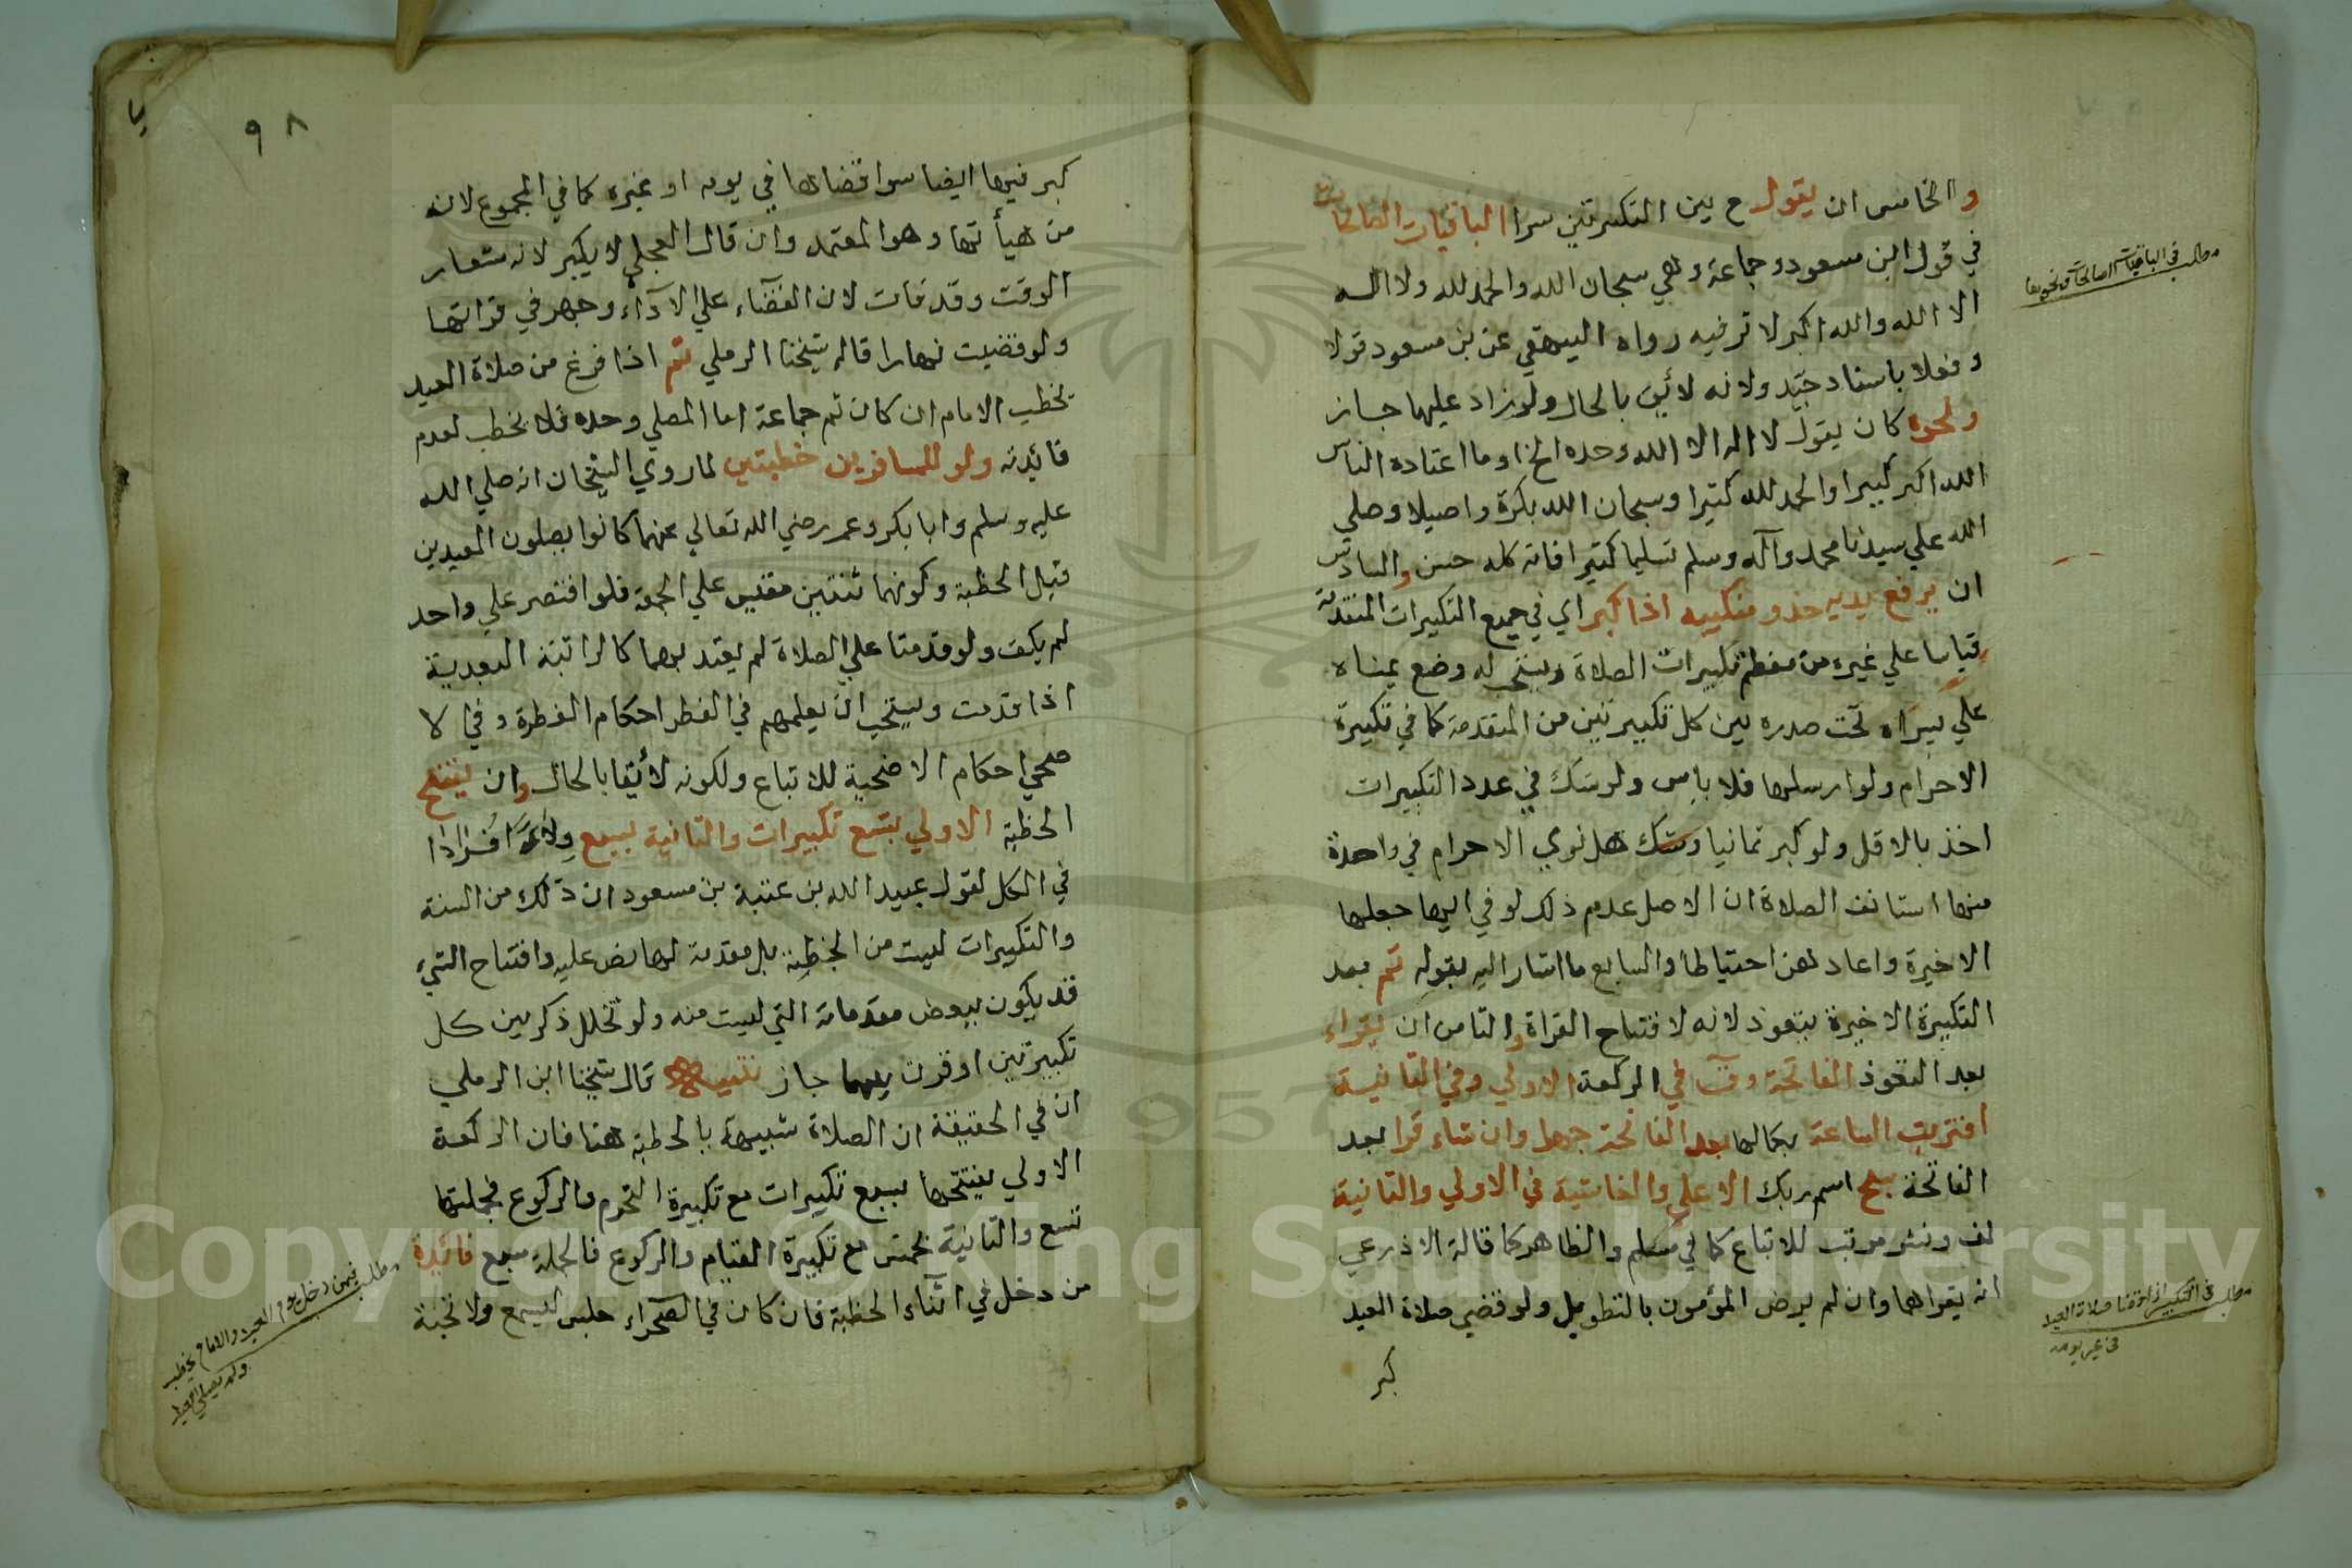 والخامس ان يقول ح بين التكبيرتين سرا الباقيات الصالحات
في قول ابن مسعود وجماعة وهي سبحان الله والحمد لله ولا اله
الا الله والله اكبر لا ترفيه رواه البيهقي عن بن مسعود قولا
وفعلا باسناد جيّد ولانه لائق بالحال ولو زاد عليها جاز
ونحوه كان يقول لا اله الا الله وحده الخ او ما اعتاده الناس
الله اكبر كبيرا والحمد لله كثيرا وسبحان الله بكرة واصيلا وصلي
الله علي سيدنا محمد وآله وسلم تسليما كثيرا فانه كله حسن والسادس
ان يرفع يديه حذو منكبيه اذا كبر اي في جميع التكبيرات المتقدمة
قياسا علي غيره من معظم تكبيرات الصلاة ويستحب له وضع يمناه
علي يسراه تحت صدره بين كل تكبيرتين من المتقدمة كما في تكبيرة
الاحرام ولو ارسلها فلا باس ولو شك في عدد التكبيرات
اخذ بالاقل ولو كبر ثمانيا وشك هل نوي الاحرام في واحدة
منها استانف الصلاة ان الاصل عدم ذلك لو في ايها جعلها
الاخيرة واعادهن احتياطا والسابع ما اشار اليه بقوله ثم بعد
التكبيرة الاخيرة يتعوذ لانه لافتتاح القراة والثامن ان يقراء
بعد التعوذ الفاتحة وق في الركعة الاولي وفي الثانية
اقتربت الساعة بكمالها بعد الفاتحة جهرا وان شاء قرا بعد
الفاتحة سبح اسم ربك الاعلي والغاشية في الاولي والثانية
لف ونشر مرتب للاتباع كما في مسلم والظاهر كما قاله الاذرعي
انه يقراهما وان لم يرض المؤمون بالتطويل ولو قضي صلاة العيد
كبر
مطلب في الباقيات الصالحات ونحوها
مطلب في التكبير اذا قضا صلاة العيد
في غير يومه
٩٨
كبر فيها ايضا سوا قضاها في يومه او غيره كما في المجموع لانه
من هيأتها وهو المعتمد وان قال العجلي لا يكبر لانه شعار
الوقت وقد فات لان القضاء علي الآداء وجهر في قراتها
ولو قضيت نهارا قاله شيخنا الرملي ثم اذا فرغ من صلاة العيد
يخطب الامام ان كان ثم جماعة اما المصلي وحده فلا يخطب لعدم
فائدته ولو للمسافرين خطبتين لما روي الشيخان انه صلي الله
عليه وسلم وابا بكر وعمر رضي الله تعالي عنهما كانوا يصلون العيدين
قبل الخطبة وكونهما ثنتين مقيس علي الجمعة فلو اقتصر علي واحد
لم يكف ولو قدمتا علي الصلاة لم يعتد بهما كالراتبة البعدية
اذا قدمت ويستحب ان يعلمهم في الفطر احكام الفطرة وفي الا
ضحي احكام الاضحية للاتباع ولكونه لائقا بالحال وان يفتتح
الخطبة الاولي بتسع تكبيرات والثانية بسبع ولاءً افرادا
في الكل لقول عبيد الله بن عتبة بن مسعود ان ذلك من السنة
والتكبيرات ليست من الخطبة بل مقدمة لها نص عليه وافتتاح الشيء
قد يكون ببعض مقدماته التي ليست منه ولو تخلل ذكر بين كل
تكبيرتين او قرن بينهما جاز تنبيه قال شيخنا ابن الرملي
ان في الحقيقة ان الصلاة شبيهة بالخطبة هنا فان الركعة
الاولي يفتتحها بسبع تكبيرات مع تكبيرة التحرم والركوع فجملتها
تسع والثانية بخمس مع تكبيرة القيام والركوع فالجملة سبع فائدة
من دخل في اثناء الخطبة فان كان في الصحراء جلس ليسمع ولا تحية
مطلب فيمن دخل يوم العيد والامام يخطب
ولم يصلي العيد
Copyright © King Saud University
957